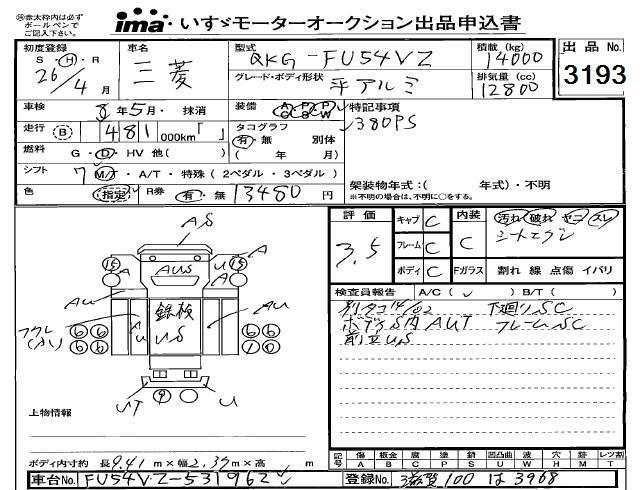 ㊟赤太枠内は必ず
ボールペンで
ご記入下さい。
ima いすゞモーターオークション出品申込書
初度登録
S・H・R
26/4月
車名
三菱
型式
QKG-FU54VZ
グレード・ボディ形状
平アルミ
積載(kg)
14000
排気量(cc)
12800
出品No.
3193
車検 8年5月・抹消
装備 A/C P/S P/W
特記事項
380PS
走行 B 481 000km「 」
タコグラフ
有・無 別体
( 年 月)
燃料 G・D・HV 他( )
シフト 7 M/T・A/T・特殊(2ペダル・3ペダル)
架装物年式:( 年式)・不明
※不明の場合は、不明に○をする。
色 (指定) R券 有・無 13480円
評価
3.5
キャブ C
フレーム C
ボディ C
内装
C
汚れ 破れ ヤニ スレ
シートエグレ
Fガラス 割れ 線 点傷 イバリ
検査員報告 A/C( ✓ ) B/T( )
別タコ14/02 下廻りSC
ボディ内AUT フレームSC
前立US
AS
A
U
A
15
15
AUS
AU
AU
AU
鉄板
US
6 6
6 6
6 6
1 6
9
UT
U
上物情報
ボディ内寸約 長9.41m×幅2.39m×高 m
記号
傷 A
板金 B
腐 C
塗 P
錆 S
凹凸曲 U
波 W
穴 H
跡 M
レツ割 T
車台No. FU54VZ-531962
登録No. 滋賀100は3968